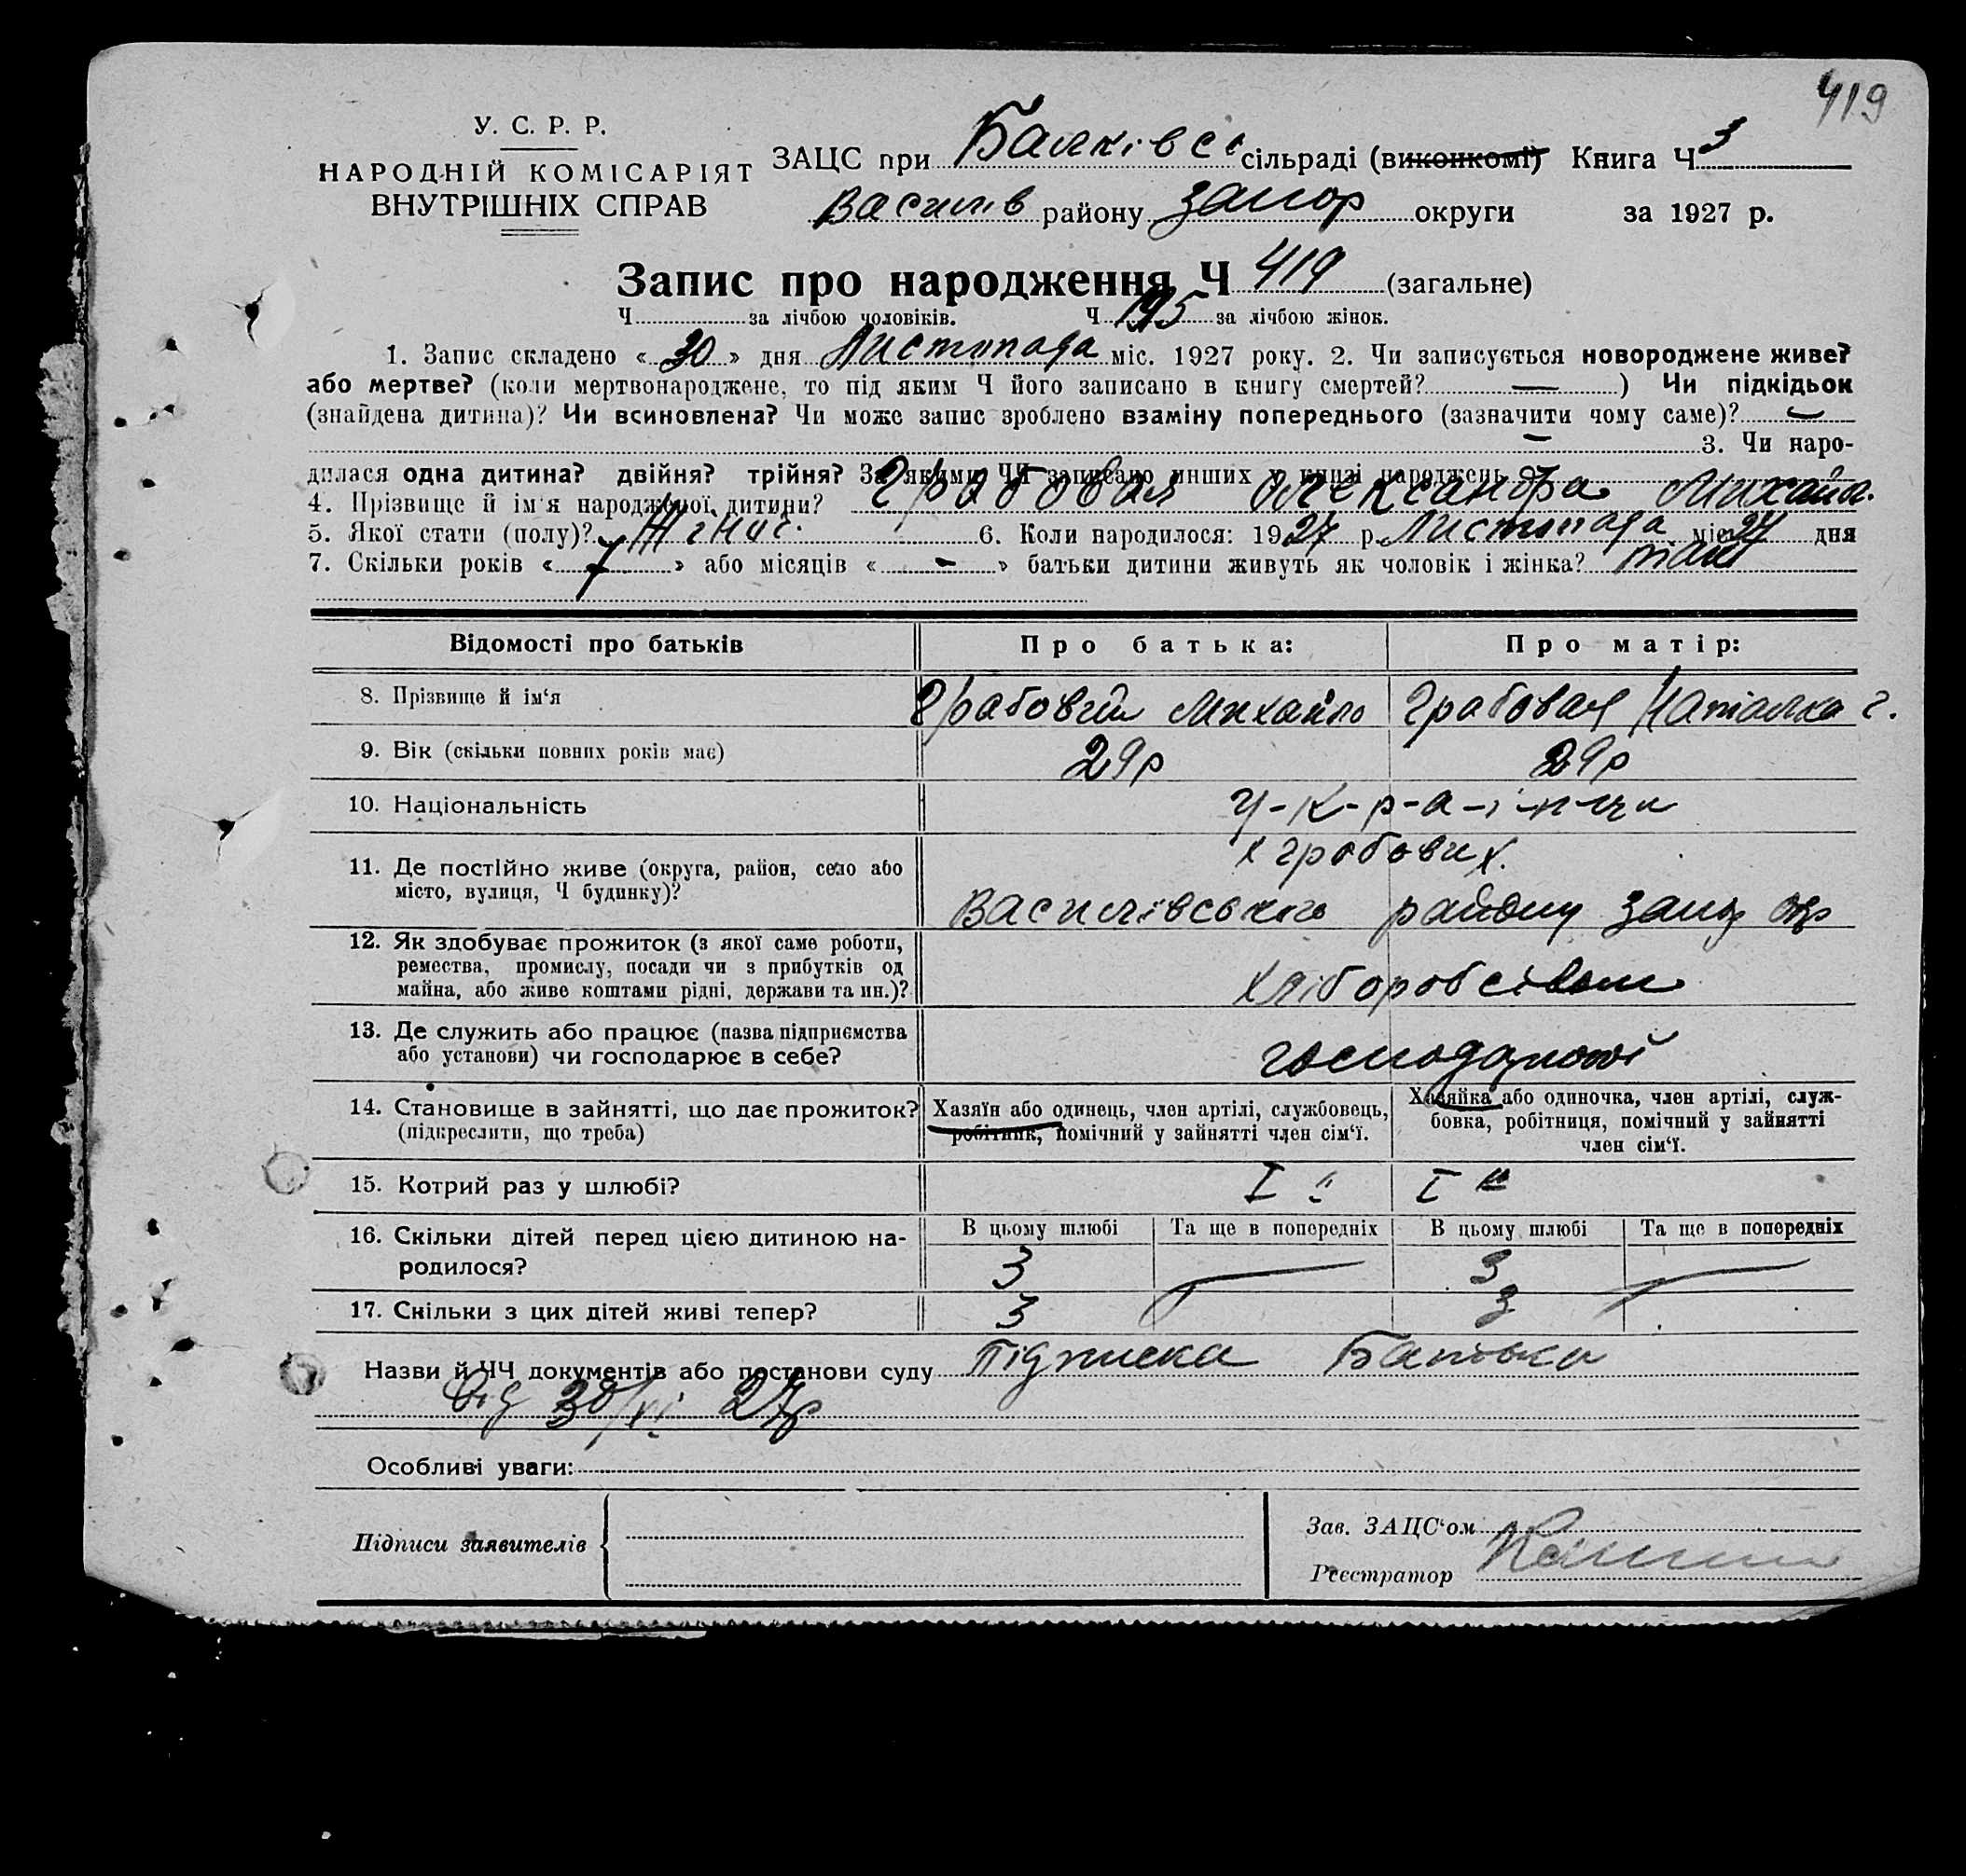 419
У. С. Р. Р.
НАРОДНІЙ КОМІСАРІЯТ
ВНУТРІШНІХ СПРАВ
ЗАЦС при Балківсь сільраді (виконкомі) Книга Ч 3
Василів району Запор округи за 1927 р.
Запис про народження Ч 419 (загальне)
Ч за лічбою чоловіків. Ч 195 за лічбою жінок.
1. Запис складено « 30 » дня Листопада міс. 1927 року. 2. Чи записується новороджене живе?
або мертве? (коли мертвонароджене, то під яким Ч його записано в книгу смертей? — ) Чи підкідьок
(знайдена дитина)? Чи всиновлена? Чи може запис зроблено взаміну попереднього (зазначити чому саме)? —
— 3. Чи наро-
дилася одна дитина? двійня? трійня? За якими ЧЧ записано инших у книзі народжень
4. Прізвище й ім'я народженої дитини? Грабовая Олександра Михайл.
5. Якої стати (полу)? Жіноч. 6. Коли народилося: 1927 р. Листопада міс. 27 дня
7. Скільки років « 7 » або місяців « - » батьки дитини живуть як чоловік і жінка?
Відомості про батьків Про батька: Про матір:
8. Прізвище й ім‘я Грабовий Михайло Грабовая Наталка Г.
9. Вік (скільки повних років має) 29р 29р
10. Національність У-к-р-а-ї-н-ци
11. Де постійно живе (округа, район, село або
місто, вулиця, Ч будинку)?
х Грабових.
Василівського району Запор окр
12. Як здобуває прожиток (з якої саме роботи,
ремества, промислу, посади чи з прибутків од
майна, або живе коштами рідні, держави та ин.)?
Хліборобством
13. Де служить або працює (назва підприємства
або установи) чи господарює в себе?
14. Становище в зайнятті, що дає прожиток?
(підкреслити, що треба)
Хазяїн або одинець, член артілі, службовець,
робітник, помічний у зайнятті член сім‘ї.
Хазяйка або одиночка, член артілі, служ-
бовка, робітниця, помічний у зайнятті
член сім‘ї.
15. Котрий раз у шлюбі? I й I й
16. Скільки дітей перед цією дитиною на-
родилося?
В цьому шлюбі Та ще в попередніх В цьому шлюбі Та ще в попередніх
3 — 3 —
17. Скільки з цих дітей живі тепер? 3 3
Назви й ЧЧ документів або постанови суду Підписка Батька
Від 30/XI 27р
Особливі уваги:
Підписи заявителів
Зав. ЗАЦС‘ом
Реєстратор